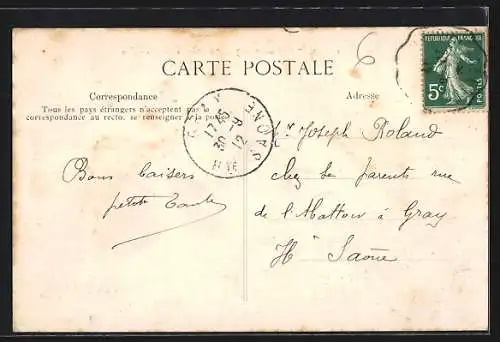 6
CARTE POSTALE
REPUBLIQUE FRANÇAISE
5c
POSTES
Correspondance
Adresse
Tous les pays étrangers n'acceptent pas la
correspondance au recto, se renseigner à la poste
17 45
30 - 9
12
SAONE
Mr Joseph Roland
Bons baisers
chez ses parents rue
petite Tante
de l'
à Gray
Hte Saône